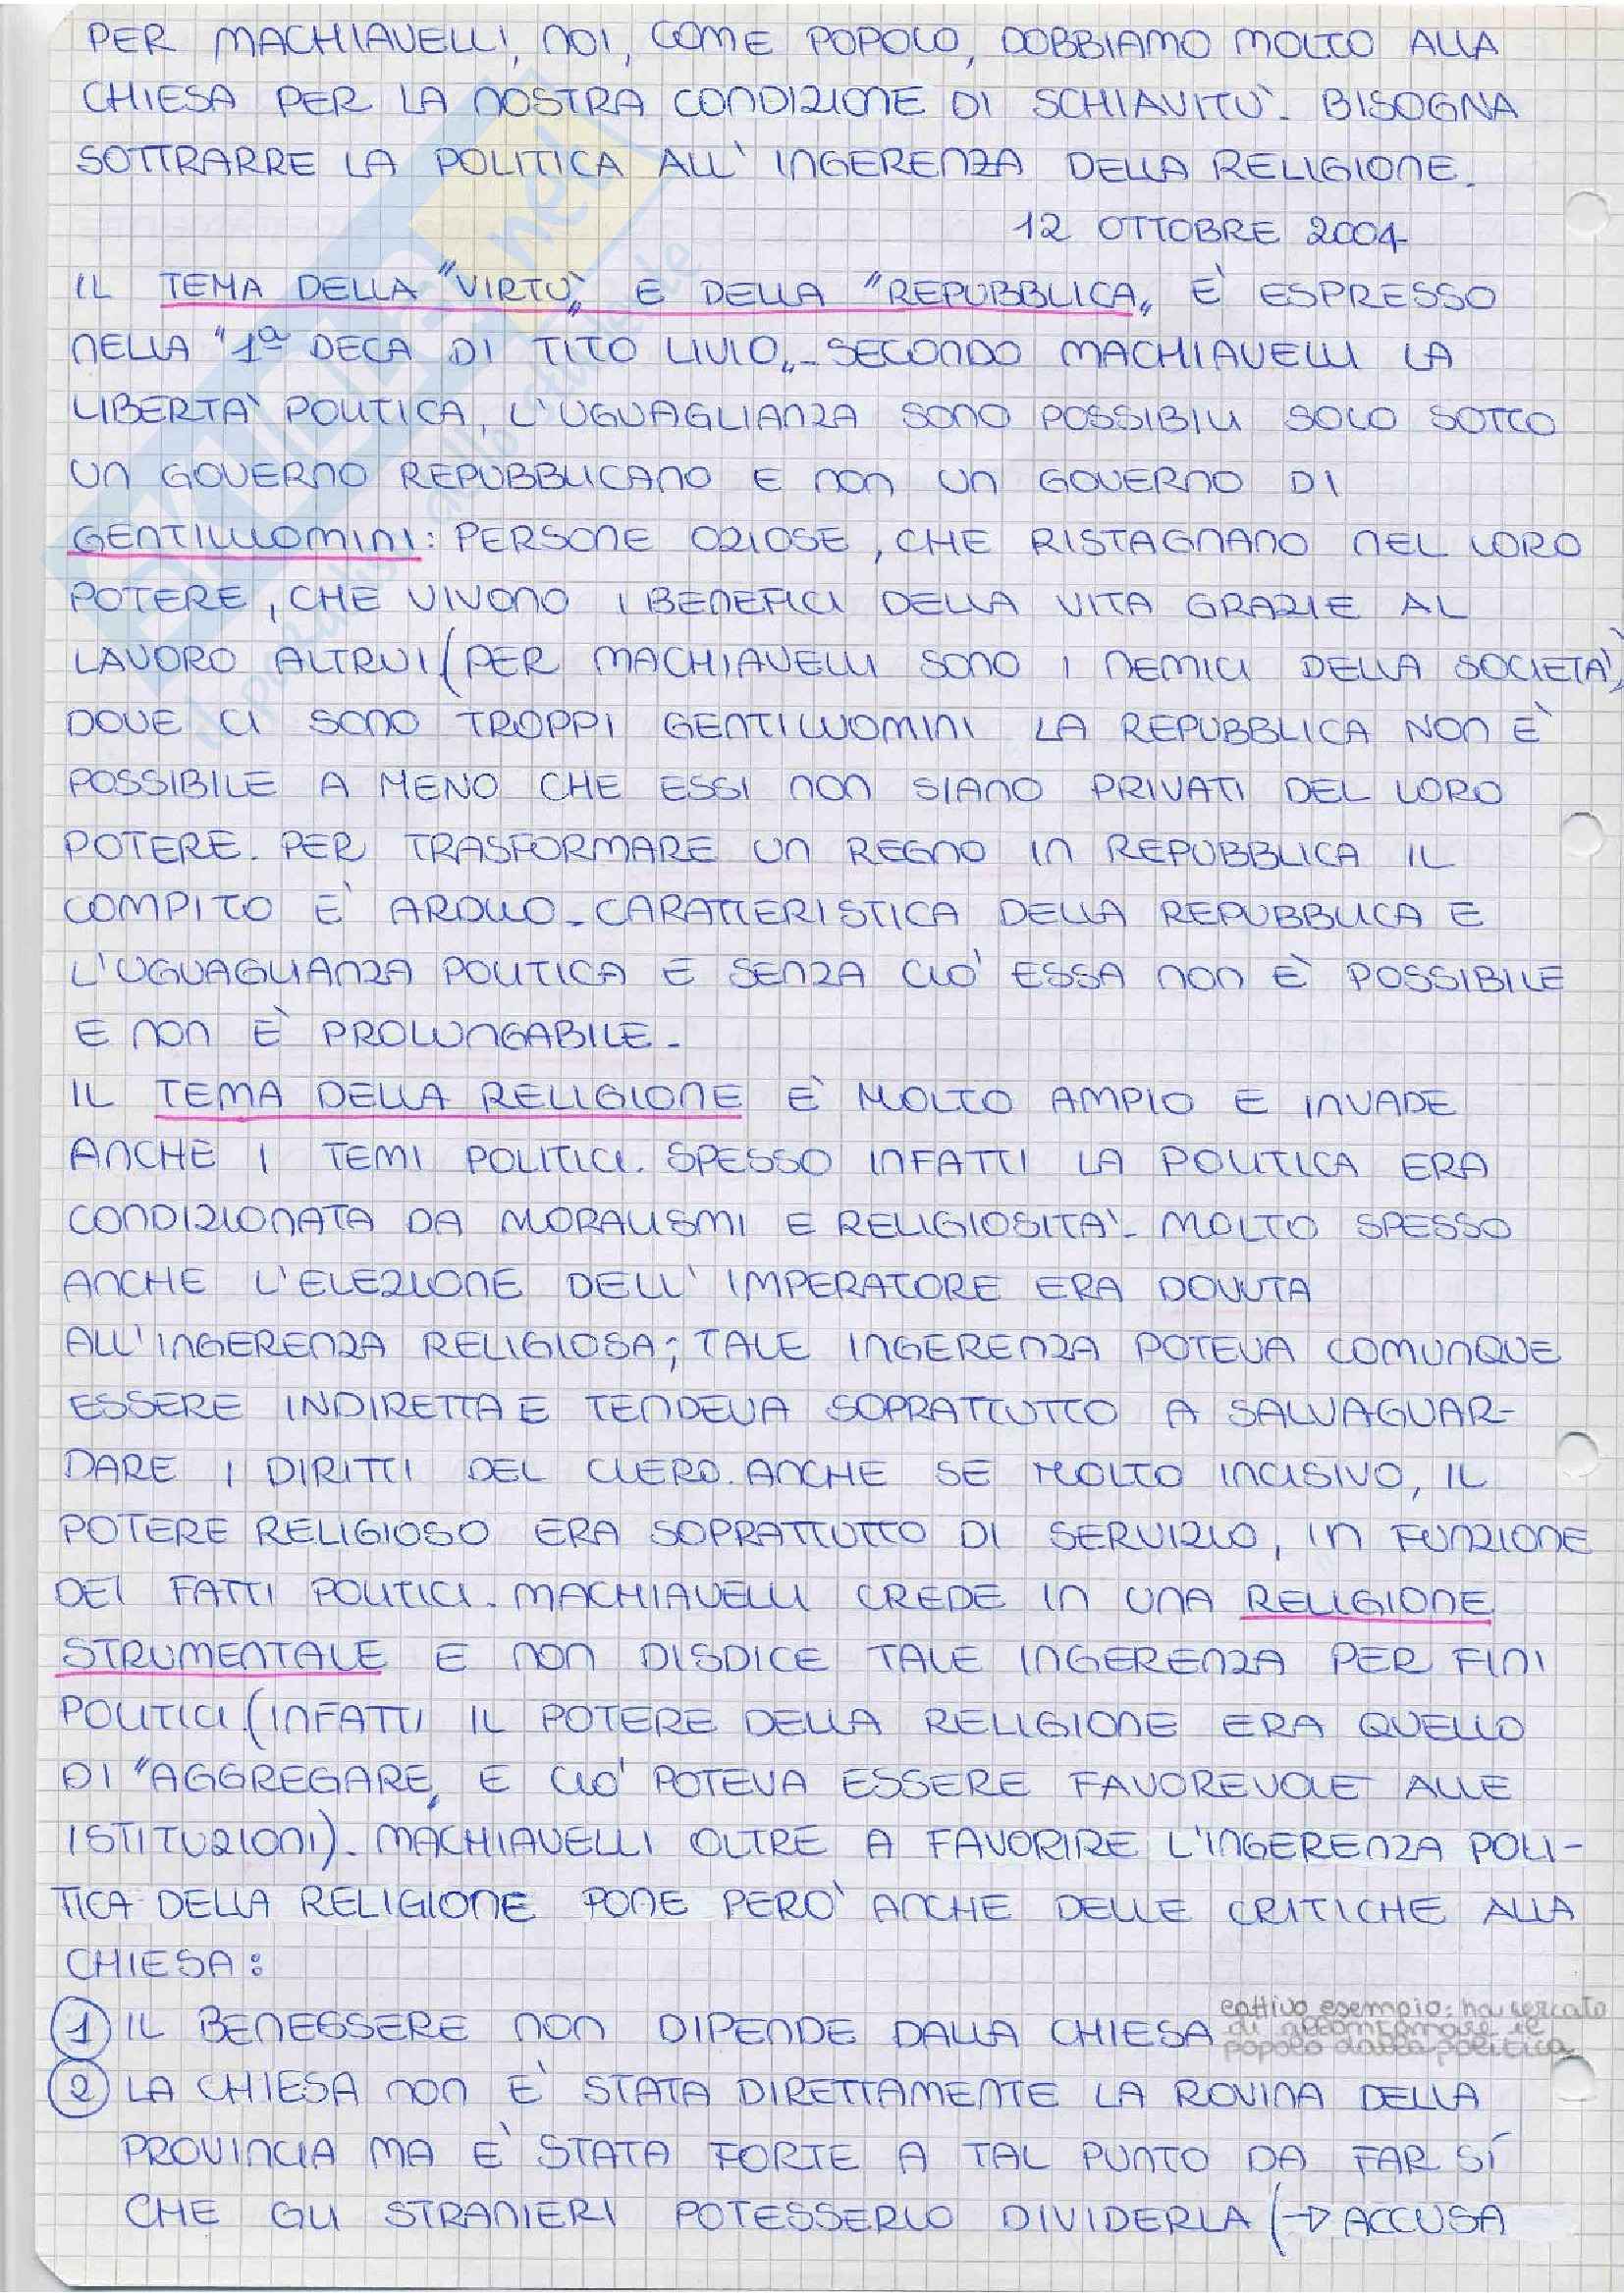 PER MACHIAVELLI, NOI, COME POPOLO, DOBBIAMO MOLTO ALLA
CHIESA PER LA NOSTRA CONDIZIONE DI SCHIAVITU'. BISOGNA
SOTTRARRE LA POLITICA ALL' INGERENZA DELLA RELIGIONE.
12 OTTOBRE 2004
IL TEMA DELLA "VIRTU'" E DELLA "REPUBBLICA" E' ESPRESSO
NELLA "1ª DECA DI TITO LIVIO". SECONDO MACHIAVELLI LA
LIBERTA' POLITICA, L'UGUAGLIANZA SONO POSSIBILI SOLO SOTTO
UN GOVERNO REPUBBLICANO E NON UN GOVERNO DI
GENTILUOMINI: PERSONE OZIOSE, CHE RISTAGNANO NEL LORO
POTERE, CHE VIVONO I BENEFICI DELLA VITA GRAZIE AL
LAVORO ALTRUI (PER MACHIAVELLI SONO I NEMICI DELLA SOCIETA')
DOVE CI SONO TROPPI GENTILUOMINI LA REPUBBLICA NON E'
POSSIBILE A MENO CHE ESSI NON SIANO PRIVATI DEL LORO
POTERE. PER TRASFORMARE UN REGNO IN REPUBBLICA IL
COMPITO E' ARDUO. CARATTERISTICA DELLA REPUBBLICA E
L'UGUAGLIANZA POLITICA E SENZA CIO' ESSA NON E' POSSIBILE
E NON E' PROLUNGABILE.
IL TEMA DELLA RELIGIONE E' MOLTO AMPIO E INVADE
ANCHE I TEMI POLITICI. SPESSO INFATTI LA POLITICA ERA
CONDIZIONATA DA MORALISMI E RELIGIOSITA'. MOLTO SPESSO
ANCHE L'ELEZIONE DELL' IMPERATORE ERA DOVUTA
ALL'INGERENZA RELIGIOSA; TALE INGERENZA POTEVA COMUNQUE
ESSERE INDIRETTA E TENDEVA SOPRATTUTTO A SALVAGUAR-
DARE I DIRITTI DEL CLERO. ANCHE SE MOLTO INCISIVO, IL
POTERE RELIGIOSO ERA SOPRATTUTTO DI SERVIZIO, IN FUNZIONE
DEI FATTI POLITICI. MACHIAVELLI CREDE IN UNA RELIGIONE
STRUMENTALE E NON DISDICE TALE INGERENZA PER FINI
POLITICI (INFATTI IL POTERE DELLA RELIGIONE ERA QUELLO
DI "AGGREGARE" E CIO' POTEVA ESSERE FAVOREVOLE ALLE
ISTITUZIONI). MACHIAVELLI OLTRE A FAVORIRE L'INGERENZA POLI-
TICA DELLA RELIGIONE PONE PERO' ANCHE DELLE CRITICHE ALLA
CHIESA:
1 IL BENESSERE NON DIPENDE DALLA CHIESA cattivo esempio: ha cercato
di allontanare il
popolo dalla politica
2 LA CHIESA NON E' STATA DIRETTAMENTE LA ROVINA DELLA
PROVINCIA MA E' STATA FORTE A TAL PUNTO DA FAR SÌ
CHE GLI STRANIERI POTESSERLO DIVIDERLA (→ ACCUSA